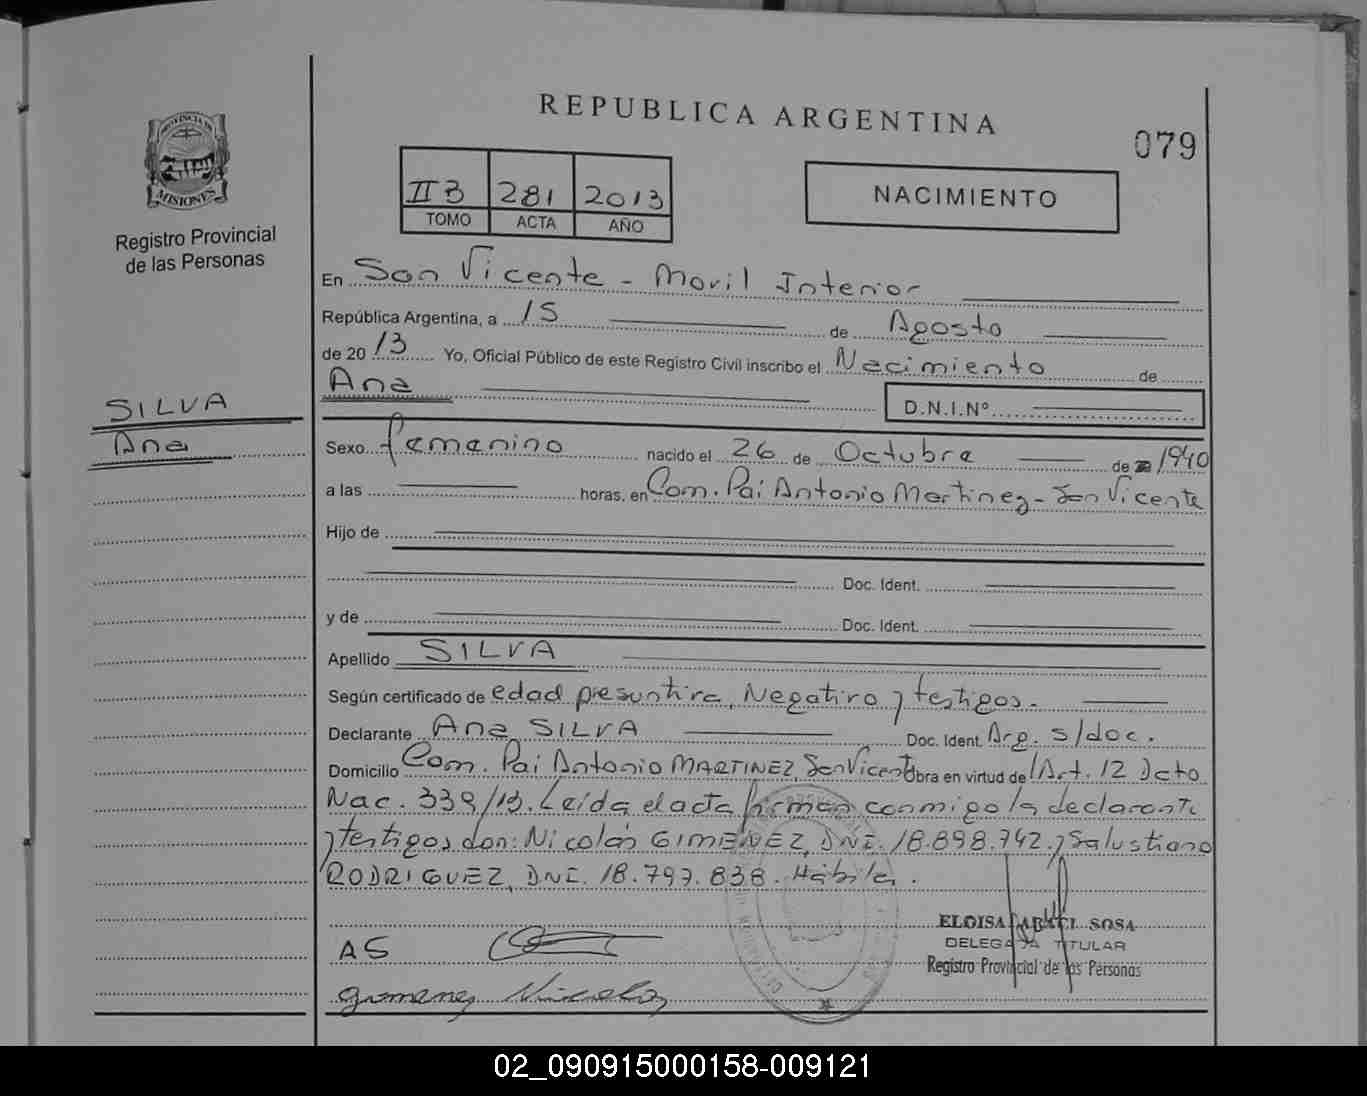 REPUBLICA ARGENTINA
079
PROVINCIA DE
MISIONES
Registro Provincial
de las Personas
II B 281 2013
TOMO ACTA AÑO
NACIMIENTO
En San Vicente - Movil Interior
República Argentina, a 15 de Agosto
de 2013 Yo, Oficial Público de este Registro Civil inscribo el Nacimiento de
Ana
D.N.I.Nº
SILVA
Ana
Sexo femenino nacido el 26 de Octubre de 1940
a las horas, en Com. Pai Antonio Martinez - San Vicente
Hijo de
Doc. Ident.
y de Doc. Ident.
Apellido SILVA
Según certificado de edad presuntiva, Negativo y testigos.
Declarante Ana SILVA Doc. Ident. Arg. s/doc.
Domicilio Com. Pai Antonio MARTINEZ, San Vicente Obra en virtud del Art. 12 Dcto
Nac. 339/13. Leída el acta firman conmigo la declarante
y testigos don: Nicolás GIMENEZ, DNI. 18.898.742. y Salustiano
RODRIGUEZ, DNI. 18.797.838. Hábiles.
ELOISA SOSA
DELEGADA TITULAR
Registro Provincial de las Personas
AS
Gimenez Nicolas
02_090915000158-009121